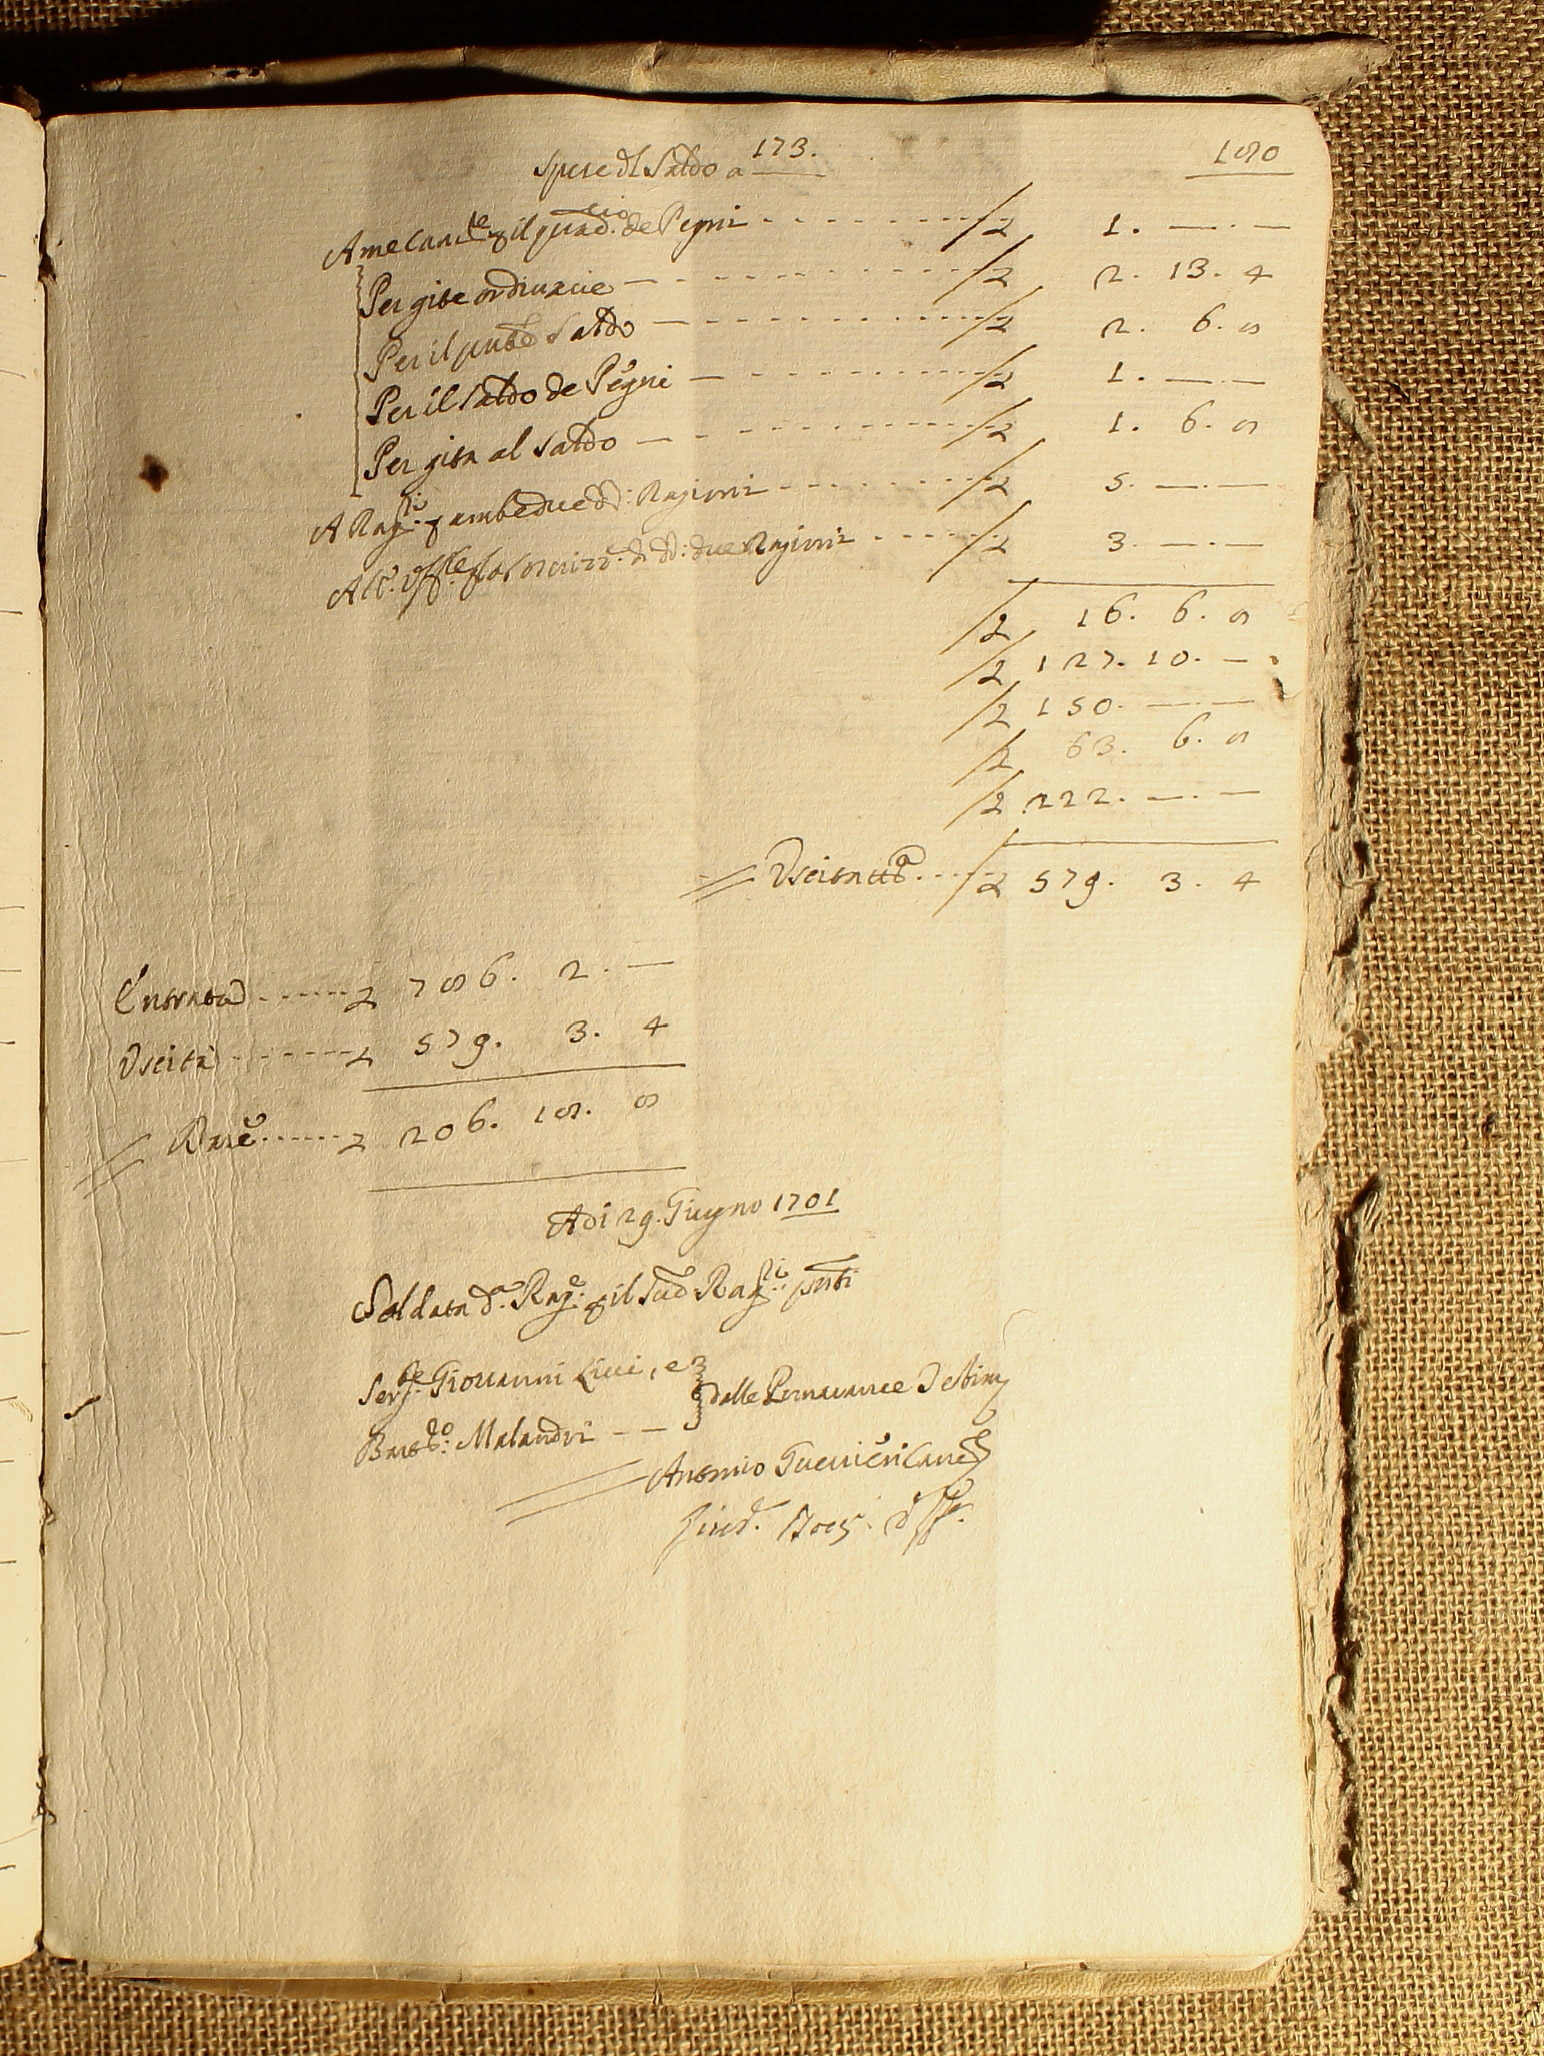 Spese dl Saldo a 173. 180
A me Canc.re p il quad.cio de Pegni - - - £ 1. — . —
Per gite ordinarie — - - - £ 2. 13. 4
Per il pnte Saldo — - - - £ 2. 6. 8
Per il Saldo de Pegni — - - - £ 1. — . —
Per gita al Saldo — - - - £ 1. 6. 8
A Rag.ri p ambedue dd: Ragioni - - - £ 5. — . —
due Ragioni - - - £ 3. — . —
£ 16. 6. 8
£ 127. 10. —
£ 150. — . —
£ 63. 6. 8
£ 222. — . —
Uscita tt.a - - - £ 579. 3. 4
Entrata - - - £ 786. 2. —
Uscita - - - £ 579. 3. 4
Rare - - - £ 206. 18. 8
Adi 29. Giugno 1701
Saldata d.a Rag.e p il Sud: Rag.ri pnti
Ser Giovanni Livi, e
dalle Pomarance
Bart.o: Malandri — —
Antonio Guerrieri Canc.e